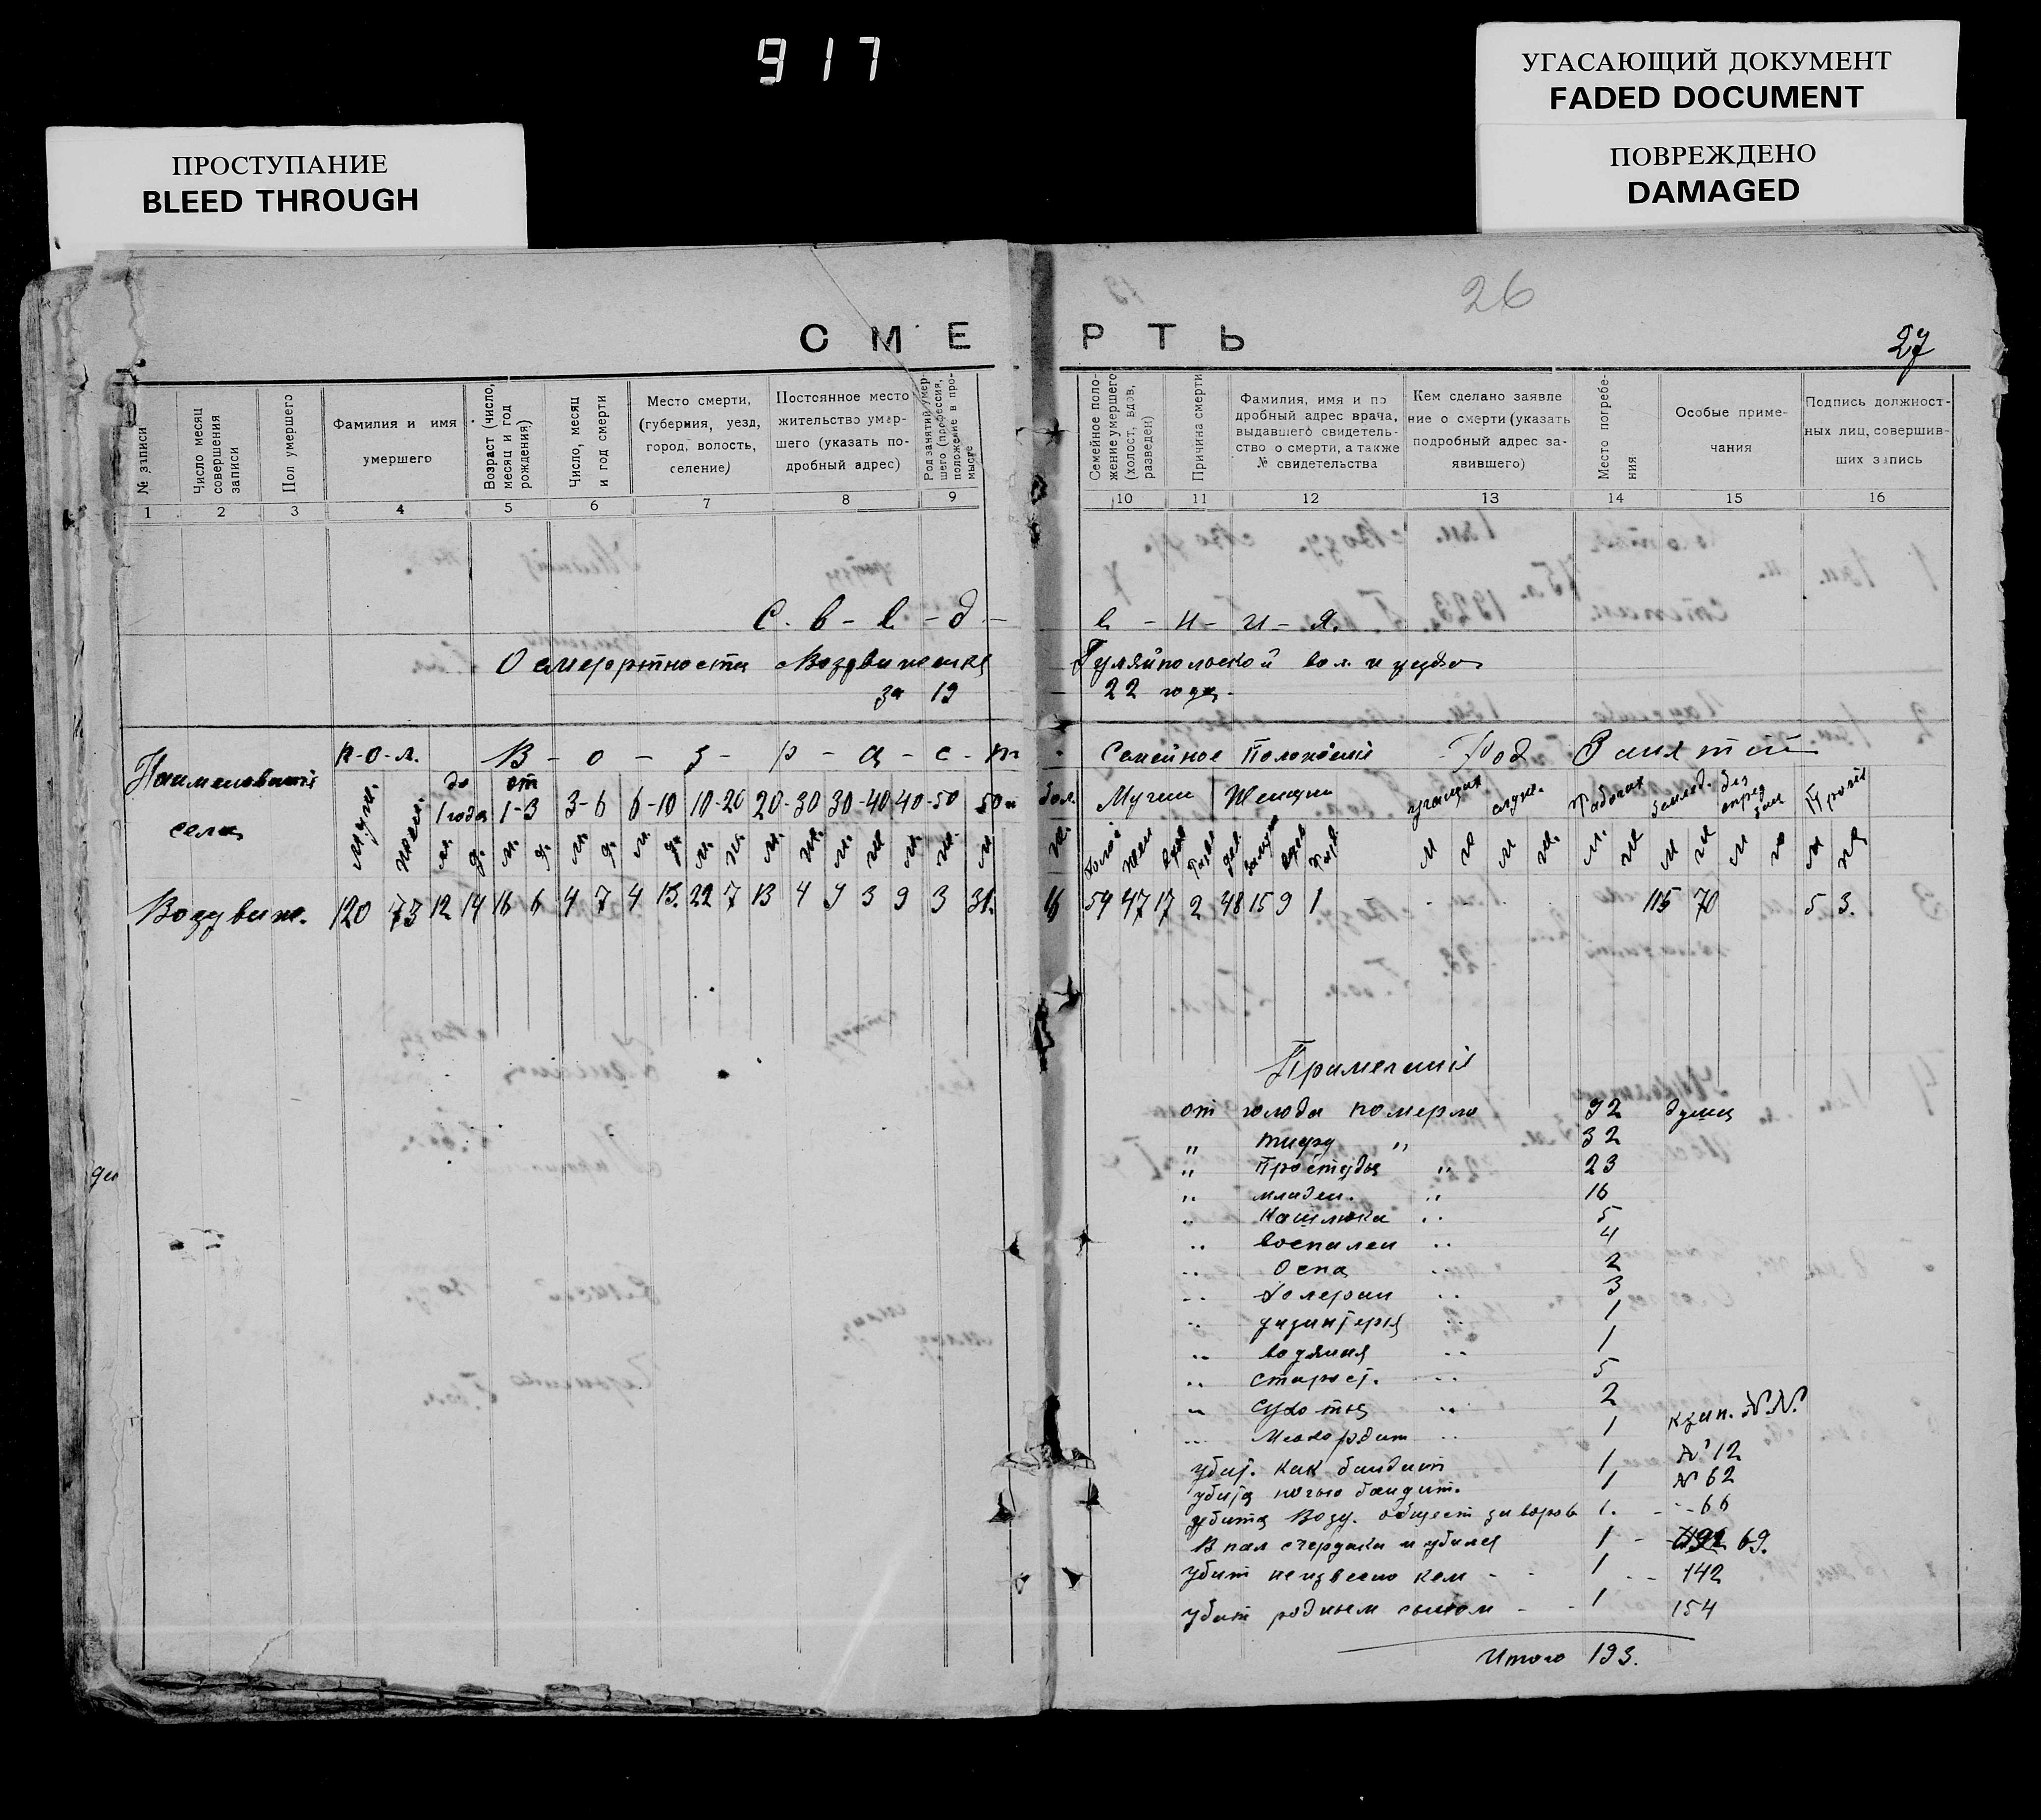 917
УГАСАЮЩИЙ ДОКУМЕНТ
FADED DOCUMENT
ПОВРЕЖДЕНО
DAMAGED
ПРОСТУПАНИЕ
BLEED THROUGH
26
27
СМЕРТЬ
№ записи
Число месяц совершения записи
Пол умершего
Фамилия и имя умершего
Возраст (число, месяц и год рождения)
Число, месяц и год смерти
Место смерти, (губерния, уезд, город, волость, селение)
Постоянное место жительство умершего (указать подробный адрес)
Род занятий умершего (профессия, положение в промысле
Семейное положение умершего (холост, вдов, разведен)
Причина смерти
Фамилия, имя и по дробный адрес врача, выдавшего свидетельство о смерти, а также № свидетельства
Кем сделано заявление о смерти (указать подробный адрес заявившего)
Место погребения
Особые примечания
Подпись должностных лиц, совершивших запись
1 2 3 4 5 6 7 8 9 10 11 12 13 14 15 16
С-в-е-д-е-н-и-я.
О смертности Воздвиженке Гуляйпольской вол. и уезда
за 1922 года
Наименование села
п-о-л. В-о-з-р-а-с-т Семейное Положение Род Занятий
муж. до 1 года от 1-3 3-6 6-10 10-20 20-30 30-40 40-50 50 и бол. Мужчин Женщин
Воздвиж. 120 73 12 14 16 6 4 7 4 13. 22 7 13 4 9 3 9 3 31. 16 54 47 17 2 48 15 9 1 115 70 5 3.
Примечание
от голода померло 92 душа
„ тифу „ 32
„ Простуда „ 23
„ младен. „ 16
„ Кашлюка „ 5
„ воспален „ 4
„ Оспа „ 2
„ Холерии „ 3
„ дизинтерия „ 1
„ водяния „ 1
„ старост. „ 5
„ Сухотка „ 2
„ 1 к зап. №№.
убит. как бандит 1 № 12
убита ночью бандит. 1 № 62
убита Возд. общест за воров 1. - 66
В пал с чердака и убился 1 - 69.
убит неизвесно кем - - 1 - - 142
убит родным сыном - - 1 154
Итого 193.